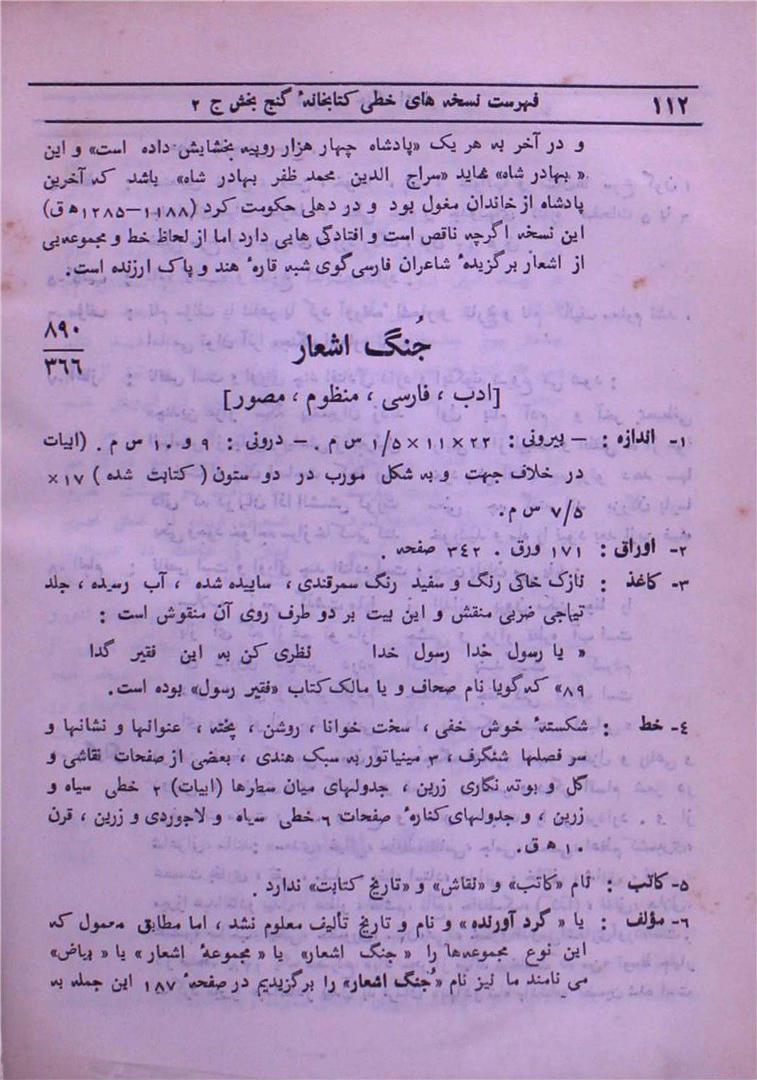 ۱۱۲ فهرست نسخه های خطی کتابخانهٔ گنج بخش ج ۲
و در آخر به هر یک «پادشاه چهار هزار روپیه بخشایش داده است» و این
«بهادر شاه» شاید «سراج الدین محمد ظفر بهادر شاه» باشد که آخرین
پادشاه از خاندان مغول بود و در دهلی حکومت کرد (۱۱۸۸–۱۲۸۵ ه ق)
این نسخه اگرچه ناقص است و افتادگی هایی دارد اما از لحاظ خط و مجموعه‌یی
از اشعار برگزیدهٔ شاعران فارسی گوی شبه قارهٔ هند و پاک ارزنده است.
۸۹۰
۳٦٦
جُنگ اشعار
[ادب ، فارسی ، منظوم ، مصور]
۱- اندازه : – بیرونی : ۲۲ × ۱۱ × ۱/۵ س م . – درونی : ۹ و ۱۰ س م . (ابیات
در خلاف جهت و به شکل مورب در دو ستون (کتابت شده) ۱۷ ×
۷/۵ س م.
۲- اوراق : ۱۷۱ ورق . ۳٤۲ صفحه .
۳- کاغذ : نازک خاکی رنگ و سفید رنگ سمرقندی ، ساییده شده ، آب رسیده ، جلد
تیماجی ضربی منقش و این بیت بر دو طرف روی آن منقوش است :
« یا رسول خدا رسول خدا نظری کن به این فقیر گدا
۸۹» که گویا نام صحاف و یا مالک کتاب «فقیر رسول» بوده است.
٤- خط : شکستهٔ خوش خفی ، سخت خوانا ، روشن ، پخته ، عنوانها و نشانها و
سر فصلها شنگرف ، ۳ مینیاتور به سبک هندی ، بعضی از صفحات نقاشی و
گل و بوته نگاری زرین ، جدولهای میان سطرها (ابیات) ۲ خطی سیاه و
زرین ، و جدولهای کنارهٔ صفحات ٦ خطی سیاه و لاجوردی و زرین ، قرن
۱۰ ه ق.
۵- کاتب : نام «کاتب» و «نقاش» و «تاریخ کتابت» ندارد .
٦- مؤلف : یا «گرد آورنده» و نام و تاریخ تألیف معلوم نشد ، اما مطابق معمول که
این نوع مجموعه‌ها را «جنگ اشعار» یا «مجموعهٔ اشعار» یا «بیاض»
می نامند ما نیز نام «جُنگ اشعار» را برگزیدیم در صفحهٔ ۱۸۷ این جمله به